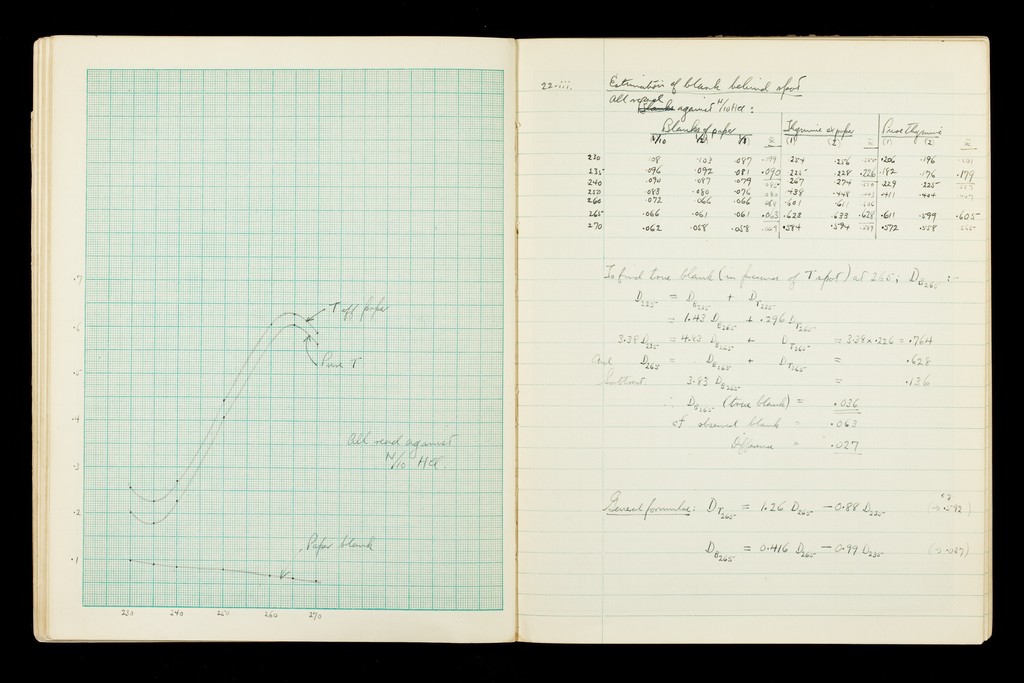 .7
.6
.5
.4
.3
.2
.1
T off paper
Pure T
All read against
N/10 HCl.
Paper blank
230 240 250 260 270
22.iii. Estimation of blank behind spot
All read
Blanks against N/10 HCl :
Blanks of paper Thymine ex paper Pure Thymine
(1) (2) (1) (2)
230 .08 .103 .087 .099 .254 .256 .255 .206 .196 .201
235 .096 .092 .081 .090 .225 .228 .226 .182 .176 .179
240 .090 .087 .079 .267 .274 .229 .225
250 .083 .080 .076 .080 .438 .448 .443 .411 .404 .407
260 .072 .066 .066 .601 .611 .606
265 .066 .061 .061 .063 .622 .633 .628 .611 .599 .605
270 .062 .058 .058 .059 .584 .594 .589 .572 .558 .565
To find true blank (in presence of T spot) at 265; D_B265 :-
D_235 = D_B235 + D_T235
= 1.43 D_B265 + .296 D_T265
3.38 D_235 = 4.83 D_B265 + D_T265 = 3.38 x .226 = .764
And D_265 = D_B265 + D_T265 = .628
Subtract 3.83 D_B265 = .136
∴ D_B265 (true blank) = .036
cf observed blank = .063
Difference = .027
General formulae: D_T265 = 1.26 D_265 - 0.88 D_235 (→ .592)
D_B265 = 0.416 D_265 - 0.99 D_235